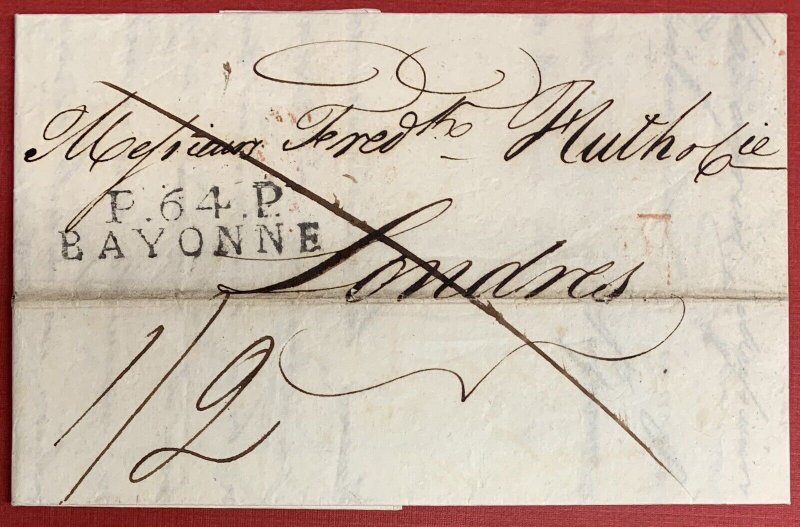 Messieurs Fredk Huth & Cie
P.64.P.
BAYONNE
Londres
1/2